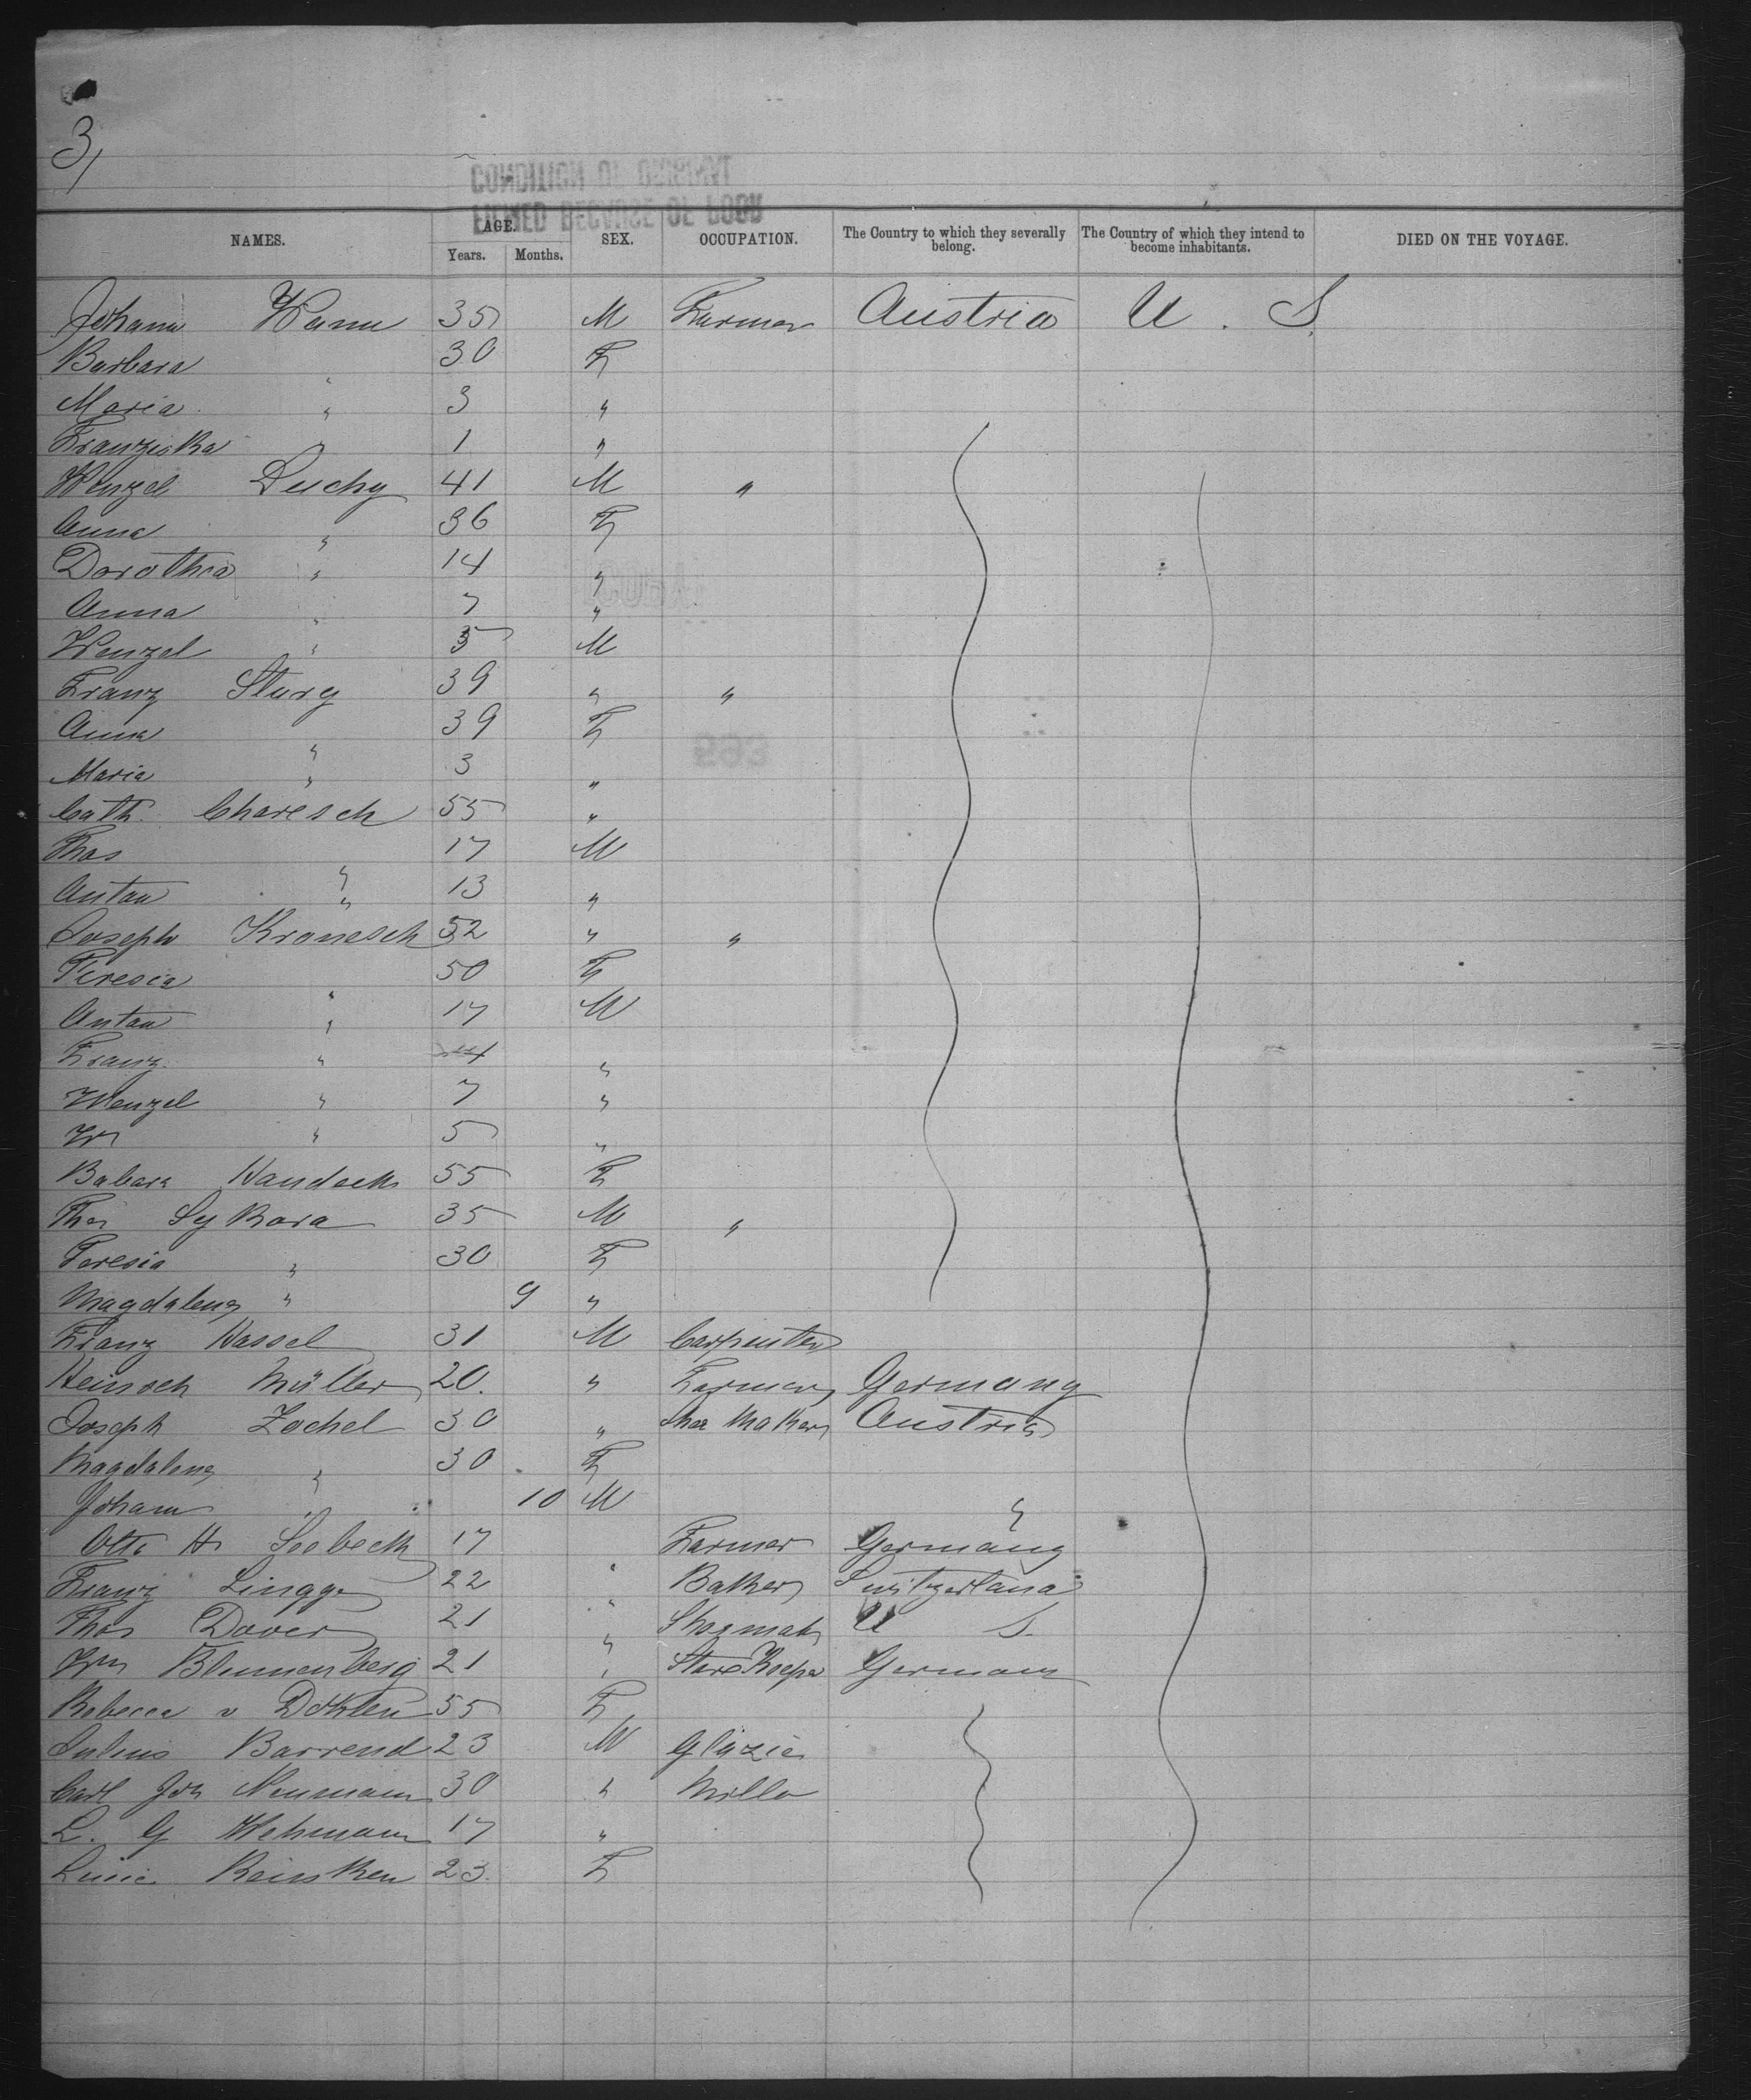 3,
NAMES. AGE. SEX. OCCUPATION. The Country to which they severally belong. The Country of which they intend to become inhabitants. DIED ON THE VOYAGE.
Years. Months.
Johann 35 M Farmer Austria U. S.
Barbara 30 F
Maria " 3 "
Franziska " 1 "
Wenzel Duchy 41 M "
Anna " 36 F
Dorothea " 14 "
Anna " 7 "
Wenzel " 5 M
Franz 39 " "
Anna " 39 F
Maria " 3 "
Cath. Charesch 55 "
Thos " 17 M
Anton " 13 "
Joseph Kronesch 52 " "
Teresia " 50 F
Anton " 17 M
Franz "
Wenzel " 7 "
Wm " 5 "
Babara 55 F
Thos Sykora 35 M "
Teresia " 30 F
Magdalena " 9 "
Franz Wassel 31 M Carpenter
Heinsch Müller 20. " Farmer Germany
Joseph Zochel 30 " Shoe Maker Austria
Magdalena " 30 F
Johann " 10 M "
Otto H Seebeck 17 Farmer Germany
Franz Lingg 22 " Baker Switzerland
Thos Dover 21 " Shoemak U S.
Wm Blumenberg 21 " Store Keeper Germany
Rebecca v 55 F
Julius Barrend 23 M Glazier
Carl Joh Neumann 30 " Miller
L. G Wehmann 17 "
Reinken 23 F